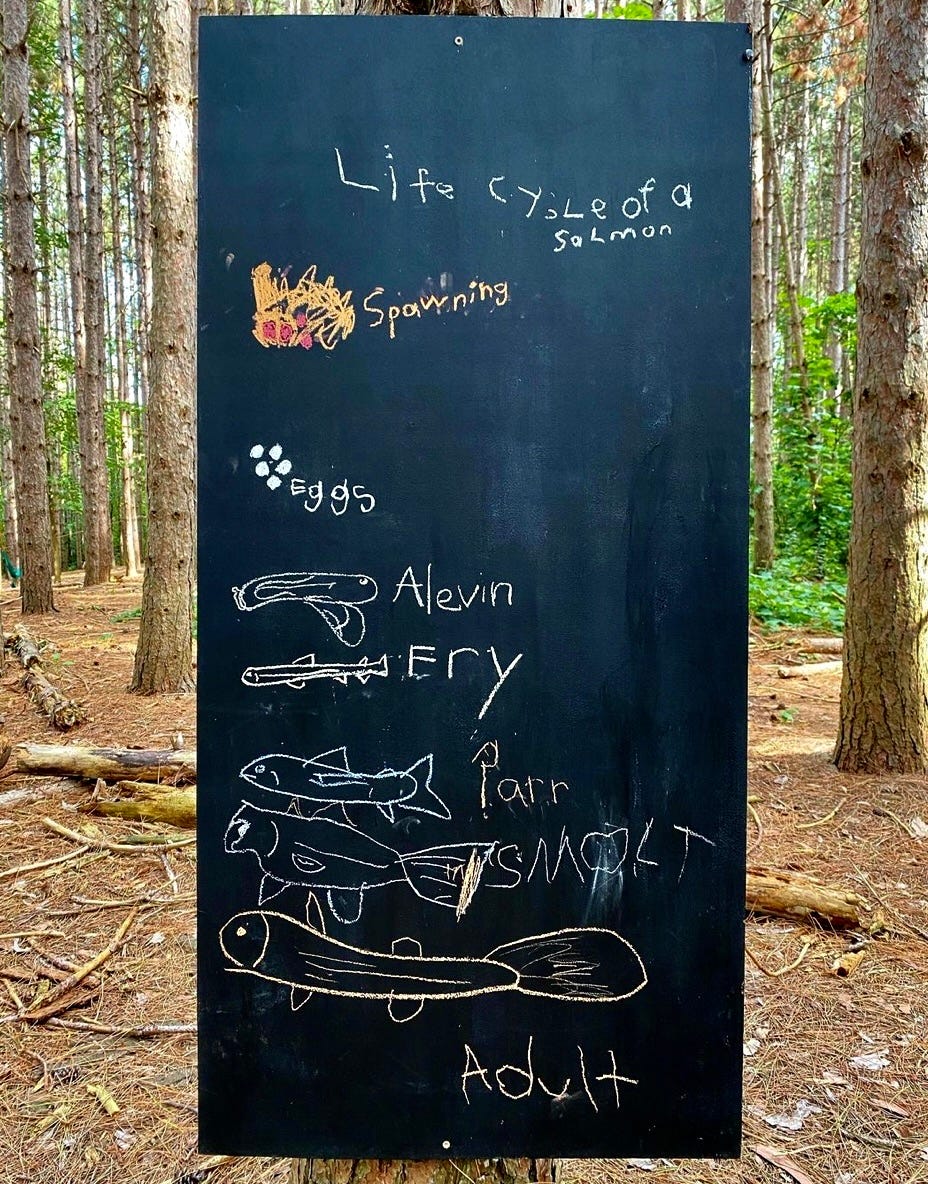 Life Cycle of a
Salmon
Spawning
Eggs
Alevin
Fry
Parr
SMOLT
Adult